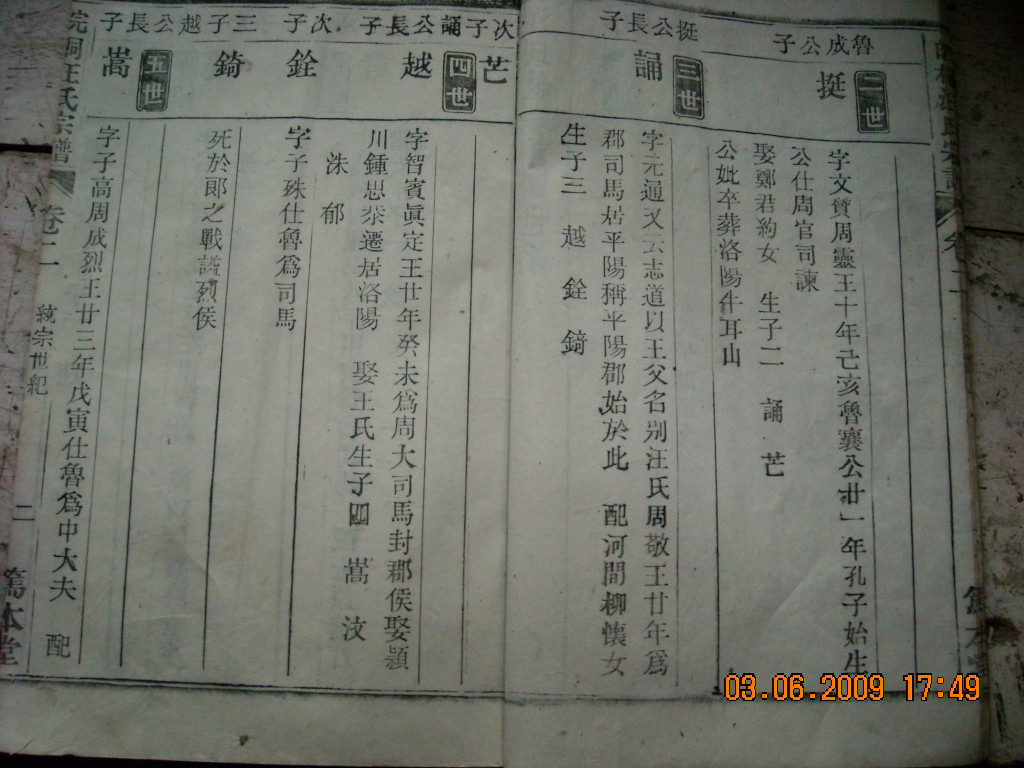 二世
魯成公子
挺
字文質周靈王十年己亥魯襄公廿一年孔子始生
公仕周官司諫
娶鄭君約女 生子二 誦 芒
公妣卒葬洛陽牛耳山
三世
挺公長子
誦
字元通又云志道以王父名別汪氏周敬王廿年為
郡司馬居平陽稱平陽郡始於此 配河間柳懷女
生子三 越 銓 錡
次子
芒
四世
誦公長子
越
字智賓眞定王廿年癸未為周大司馬封郡侯娶潁
川鍾思泰遷居洛陽 娶王氏生子四 蒿 汶
洙 郁
次子
銓
字子殊仕魯為司馬
三子
錡
死於郎之戰諡烈侯
五世
越公長子
蒿
字子高周威烈王廿三年戊寅仕魯為中大夫 配
皖桐汪氏宗譜
卷二
統宗世紀
二
篤本堂
03.06.2009 17:49